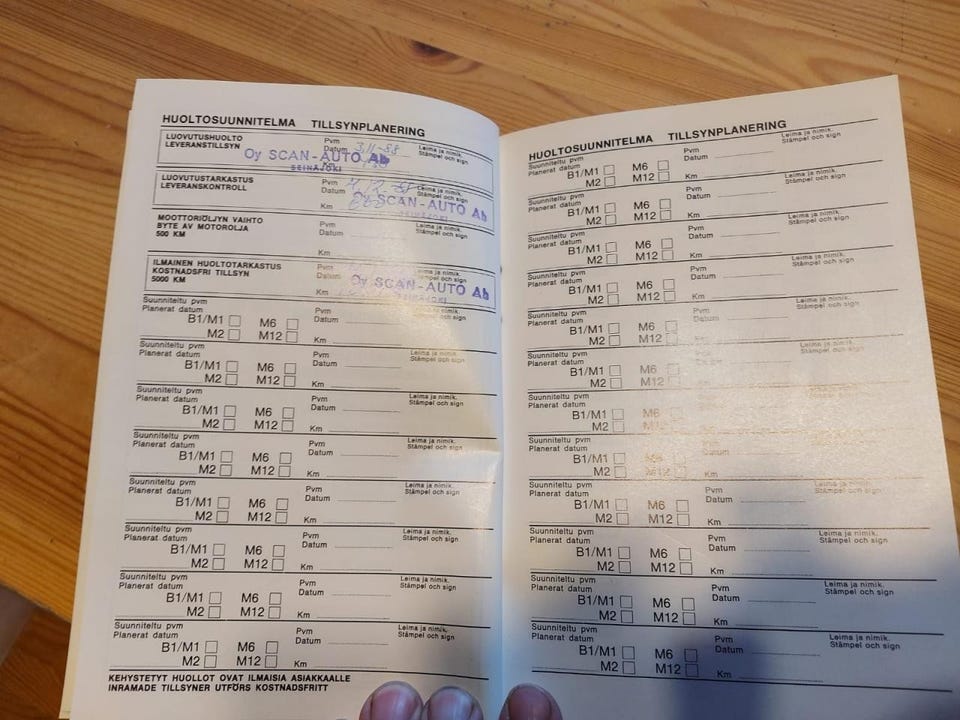 HUOLTOSUUNNITELMA TILLSYNPLANERING
LUOVUTUSHUOLTO Pvm Leima ja nimik.
LEVERANSTILLSYN Datum 3.11-88 Stämpel och sign
Oy SCAN-AUTO Ab
SEINÄJOKI
LUOVUTUSTARKASTUS Pvm Leima ja nimik.
LEVERANSKONTROLL Datum Stämpel och sign
Km Oy SCAN-AUTO Ab
SEINÄJOKI
MOOTTORIÖLJYN VAIHTO Pvm Leima ja nimik.
BYTE AV MOTOROLJA Datum Stämpel och sign
500 KM Km
ILMAINEN HUOLTOTARKASTUS Pvm Leima ja nimik.
KOSTNADSFRI TILLSYN Datum Stämpel och sign
5000 KM Km Oy SCAN-AUTO Ab
SEINÄJOKI
Suunniteltu pvm Pvm Leima ja nimik.
Planerat datum Datum Stämpel och sign
B1/M1 M6
M2 M12 Km
Suunniteltu pvm Pvm Leima ja nimik.
Planerat datum Datum Stämpel och sign
B1/M1 M6
M2 M12 Km
Suunniteltu pvm Pvm Leima ja nimik.
Planerat datum Datum Stämpel och sign
B1/M1 M6
M2 M12 Km
Suunniteltu pvm Pvm Leima ja nimik.
Planerat datum Datum Stämpel och sign
B1/M1 M6
M2 M12 Km
Suunniteltu pvm Pvm Leima ja nimik.
Planerat datum Datum Stämpel och sign
B1/M1 M6
M2 M12 Km
Suunniteltu pvm Pvm Leima ja nimik.
Planerat datum Datum Stämpel och sign
B1/M1 M6
M2 M12 Km
Suunniteltu pvm Pvm Leima ja nimik.
Planerat datum Datum Stämpel och sign
B1/M1 M6
M2 M12 Km
Suunniteltu pvm Pvm Leima ja nimik.
Planerat datum Datum Stämpel och sign
B1/M1 M6
M2 M12 Km
KEHYSTETYT HUOLLOT OVAT ILMAISIA ASIAKKAALLE
INRAMADE TILLSYNER UTFÖRS KOSTNADSFRITT
HUOLTOSUUNNITELMA TILLSYNPLANERING
Suunniteltu pvm Pvm Leima ja nimik.
Planerat datum Datum Stämpel och sign
B1/M1 M6
M2 M12 Km
Suunniteltu pvm Pvm Leima ja nimik.
Planerat datum Datum Stämpel och sign
B1/M1 M6
M2 M12 Km
Suunniteltu pvm Pvm Leima ja nimik.
Planerat datum Datum Stämpel och sign
B1/M1 M6
M2 M12 Km
Suunniteltu pvm Pvm Leima ja nimik.
Planerat datum Datum Stämpel och sign
B1/M1 M6
M2 M12 Km
Suunniteltu pvm Pvm Leima ja nimik.
Planerat datum Datum Stämpel och sign
B1/M1 M6
M2 M12 Km
Suunniteltu pvm Leima ja nimik.
Planerat datum Datum Stämpel och sign
B1/M1 M6
M2 M12
Suunniteltu pvm
Planerat datum Datum Stämpel och sign
B1/M1 M6
M2 M12
Suunniteltu pvm Leima ja nimik.
Planerat datum Datum Stämpel och sign
B1/M1 M6
M2 M12 Km
Suunniteltu pvm Pvm Leima ja nimik.
Planerat datum Datum Stämpel och sign
B1/M1 M6
M2 M12 Km
Suunniteltu pvm Pvm Leima ja nimik.
Planerat datum Datum Stämpel och sign
B1/M1 M6
M2 M12 Km
Suunniteltu pvm Pvm Leima ja nimik.
Planerat datum Datum Stämpel och sign
B1/M1 M6
M2 M12 Km
Suunniteltu pvm Pvm Leima ja nimik.
Planerat datum Datum Stämpel och sign
B1/M1 M6
M2 M12 Km